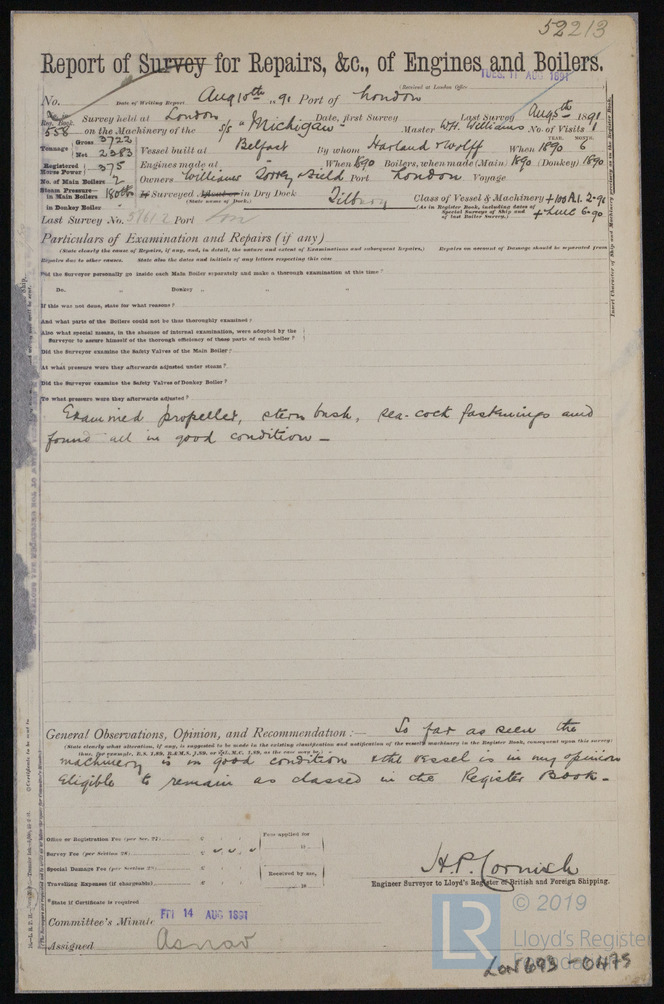 52213
Report of Survey for Repairs, &c., of Engines and Boilers.
TUES. 11 AUG 1891
(Received at London Office
No. Date of Writing Report Aug 10th "91 Port of London
No. in Reg. Book. Survey held at London Date, first Survey Last Survey Aug 5th 1891
558 on the Machinery of the S/S "Michigan" Master W.H. Williams No. of Visits 1
Tonnage Gross 3722 Net 2383 Vessel built at Belfast By whom Harland & Wolff When 1890 6
YEAR. MONTH.
Registered Horse Power 375 Engines made at When 1890 Boilers, when made (Main) 1890 (Donkey) 1890
No. of Main Boilers 2 Owners Williams Torrey & Field Port London Voyage
Steam Pressure in Main Boilers 180 lbs If Surveyed Afloat or in Dry Dock Tilbury Class of Vessel & Machinery +100A1. 2.90
(State name of Dock.) (As in Register Book, including dates of Special Surveys of Ship and of last Boiler Survey.) +LMC 6.90
in Donkey Boiler "
Last Survey No. 51612 Port Lon
Particulars of Examination and Repairs (if any)
(State clearly the cause of Repairs, if any, and, in detail, the nature and extent of Examinations and subsequent Repairs.) Repairs on account of Damage should be separated from
Repairs due to other causes. State also the dates and initials of any letters respecting this case
Did the Surveyor personally go inside each Main Boiler separately and make a thorough examination at this time?
Do. " Donkey " " "
If this was not done, state for what reasons?
And what parts of the Boilers could not be thus thoroughly examined?
Also what special means, in the absence of internal examination, were adopted by the
Surveyor to assure himself of the thorough efficiency of those parts of each boiler?
Did the Surveyor examine the Safety Valves of the Main Boiler?
At what pressure were they afterwards adjusted under steam?
Did the Surveyor examine the Safety Valves of Donkey Boiler?
To what pressure were they afterwards adjusted?
Examined propeller, stern bush, sea-cock fastenings and
found all in good condition —
General Observations, Opinion, and Recommendation :— So far as seen the
(State clearly what alteration, if any, is suggested to be made in the existing classification and notification of the vessel's machinery in the Register Book, consequent upon this survey;
machinery is in good condition & the vessel is in my opinion
Eligible to remain as classed in the Register Book —
Office or Registration Fee (per Sec. 27) £ Fees applied for
Survey Fee (per Section 28) £ 18
Special Damage Fee (per Section 28) £ Received by me,
Travelling Expenses (if chargeable) £ 18
H.P. Cornish
Engineer Surveyor to Lloyd's Register of British and Foreign Shipping.
*State if Certificate is required
Committee's Minute FRI 14 AUG 1891
Assigned As now
© 2019
LR
Lloyd's Register
Foundation
LON 693 - 0475
Insert Character of Ship and Machinery precisely as in the Register Book.